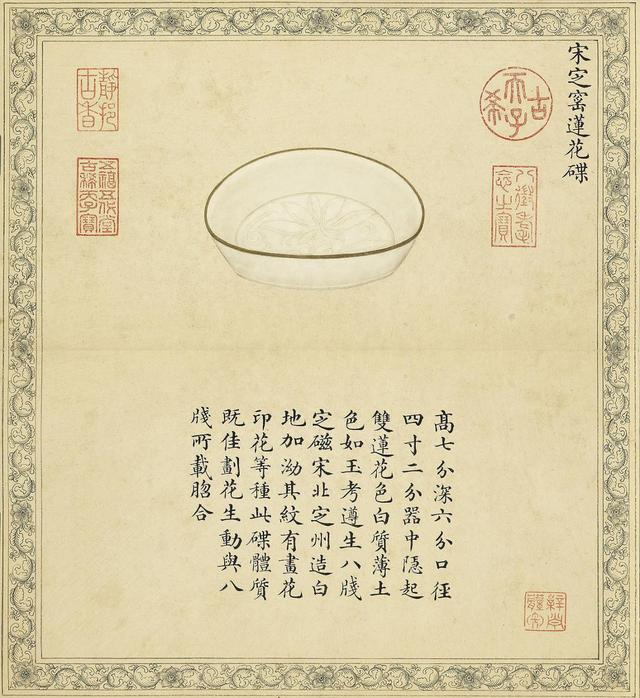 宋定窑蓮花碟
古希天子
八徵耄念之寶
高七分深六分口徑
四寸二分器中隱起
雙蓮花色白質薄土
色如玉考遵生八牋
定磁宋北定州造白
地加泑其紋有畫花
印花等種此碟體質
既佳劃花生動與八
牋所載脗合
五福五代堂古稀天子寶